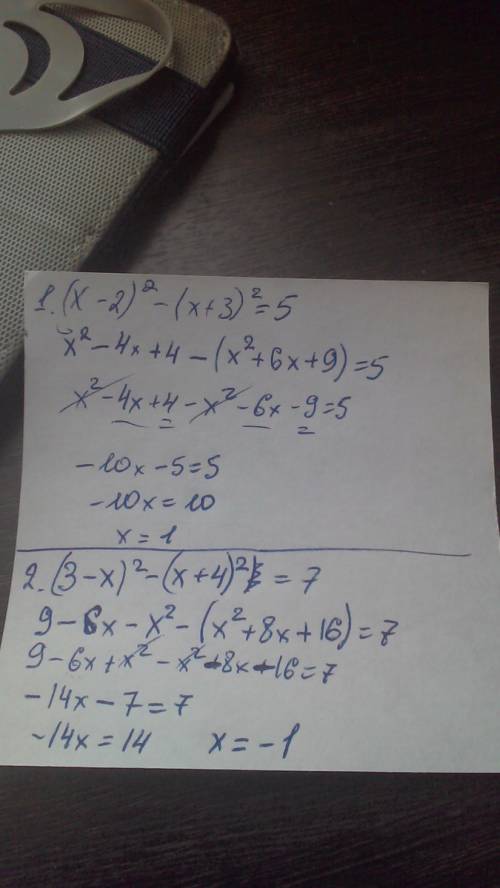 1. (x-2)² - (x+3)² = 5
x² - 4x + 4 - (x² + 6x + 9) = 5
x² - 4x + 4 - x² - 6x - 9 = 5
-10x - 5 = 5
-10x = 10
x = 1
2. (3-x)² - (x+4)² = 7
9 - 6x - x² - (x² + 8x + 16) = 7
9 - 6x + x² - x² - 8x - 16 = 7
-14x - 7 = 7
-14x = 14 x = -1